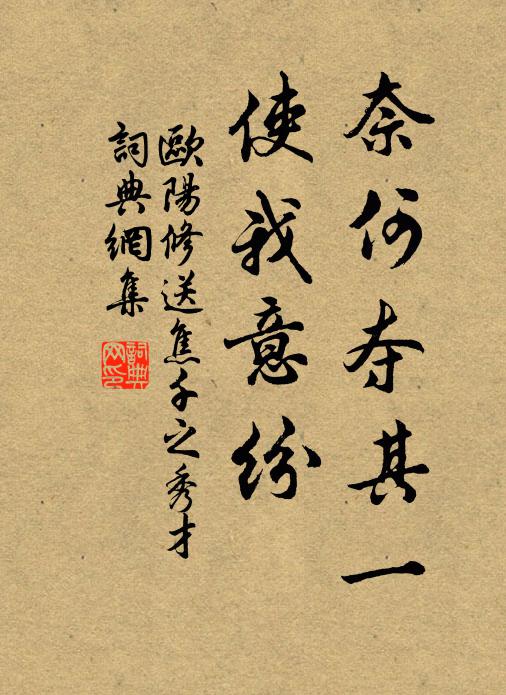 奈何夺其一
使我意紛
歐陽修送焦千之秀才
詞典網集
詞典網印